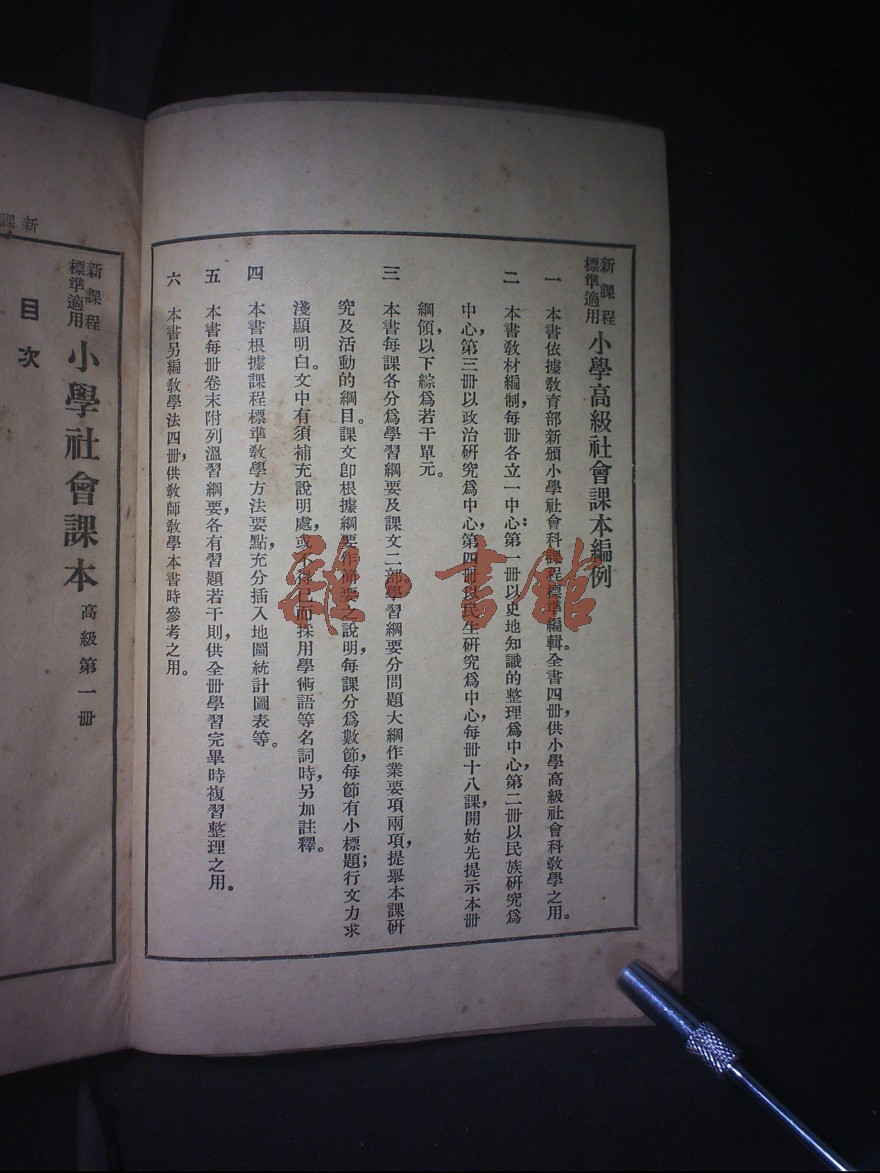 新課程標準適用 小學高級社會課本編例
一 本書依據教育部新頒小學社會科課程標準編輯。全書四冊,供小學高級社會科教學之用。
二 本書教材編制,每冊各立一中心:第一冊以史地知識的整理爲中心,第二冊以民族硏究爲
中心,第三冊以政治硏究爲中心,第四冊以民生硏究爲中心,每冊十八課,開始先提示本冊
綱領,以下綜爲若干單元。
三 本書每課各分爲學習綱要及課文二部學習綱要分問題大綱作業要項兩項,提舉本課硏
究及活動的綱目。課文卽根據綱要作簡要之說明,每課分爲數節,每節有小標題;行文力求
淺顯明白。文中有須補充說明處,或不得已而採用學術語等名詞時,另加註釋。
四 本書根據課程標準敎學方法要點,充分插入地圖統計圖表等。
五 本書每冊卷末附列溫習綱要,各有習題若干則,供全冊學習完畢時複習整理之用。
六 本書另編敎學法四冊,供敎師敎學本書時參考之用。
新課
新課程標準適用 小學社會課本 高級第一冊
目次
雜·書館